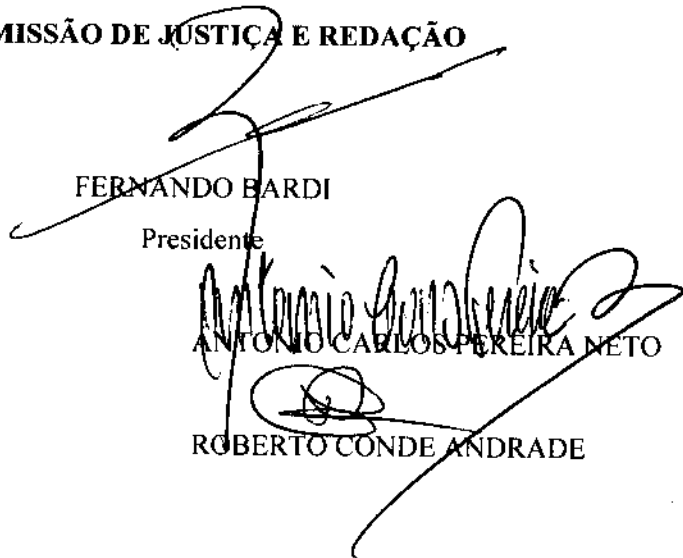 MISSÃO DE JUSTIÇA E REDAÇÃO
FERNANDO BARDI
Presidente
ANTONIO CARLOS PEREIRA NETO
ROBERTO CONDE ANDRADE